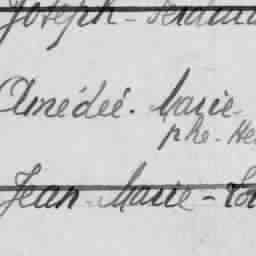 Joseph - Ferdin
Amédée. Marie-
phe. He
Jean-Marie-Lou